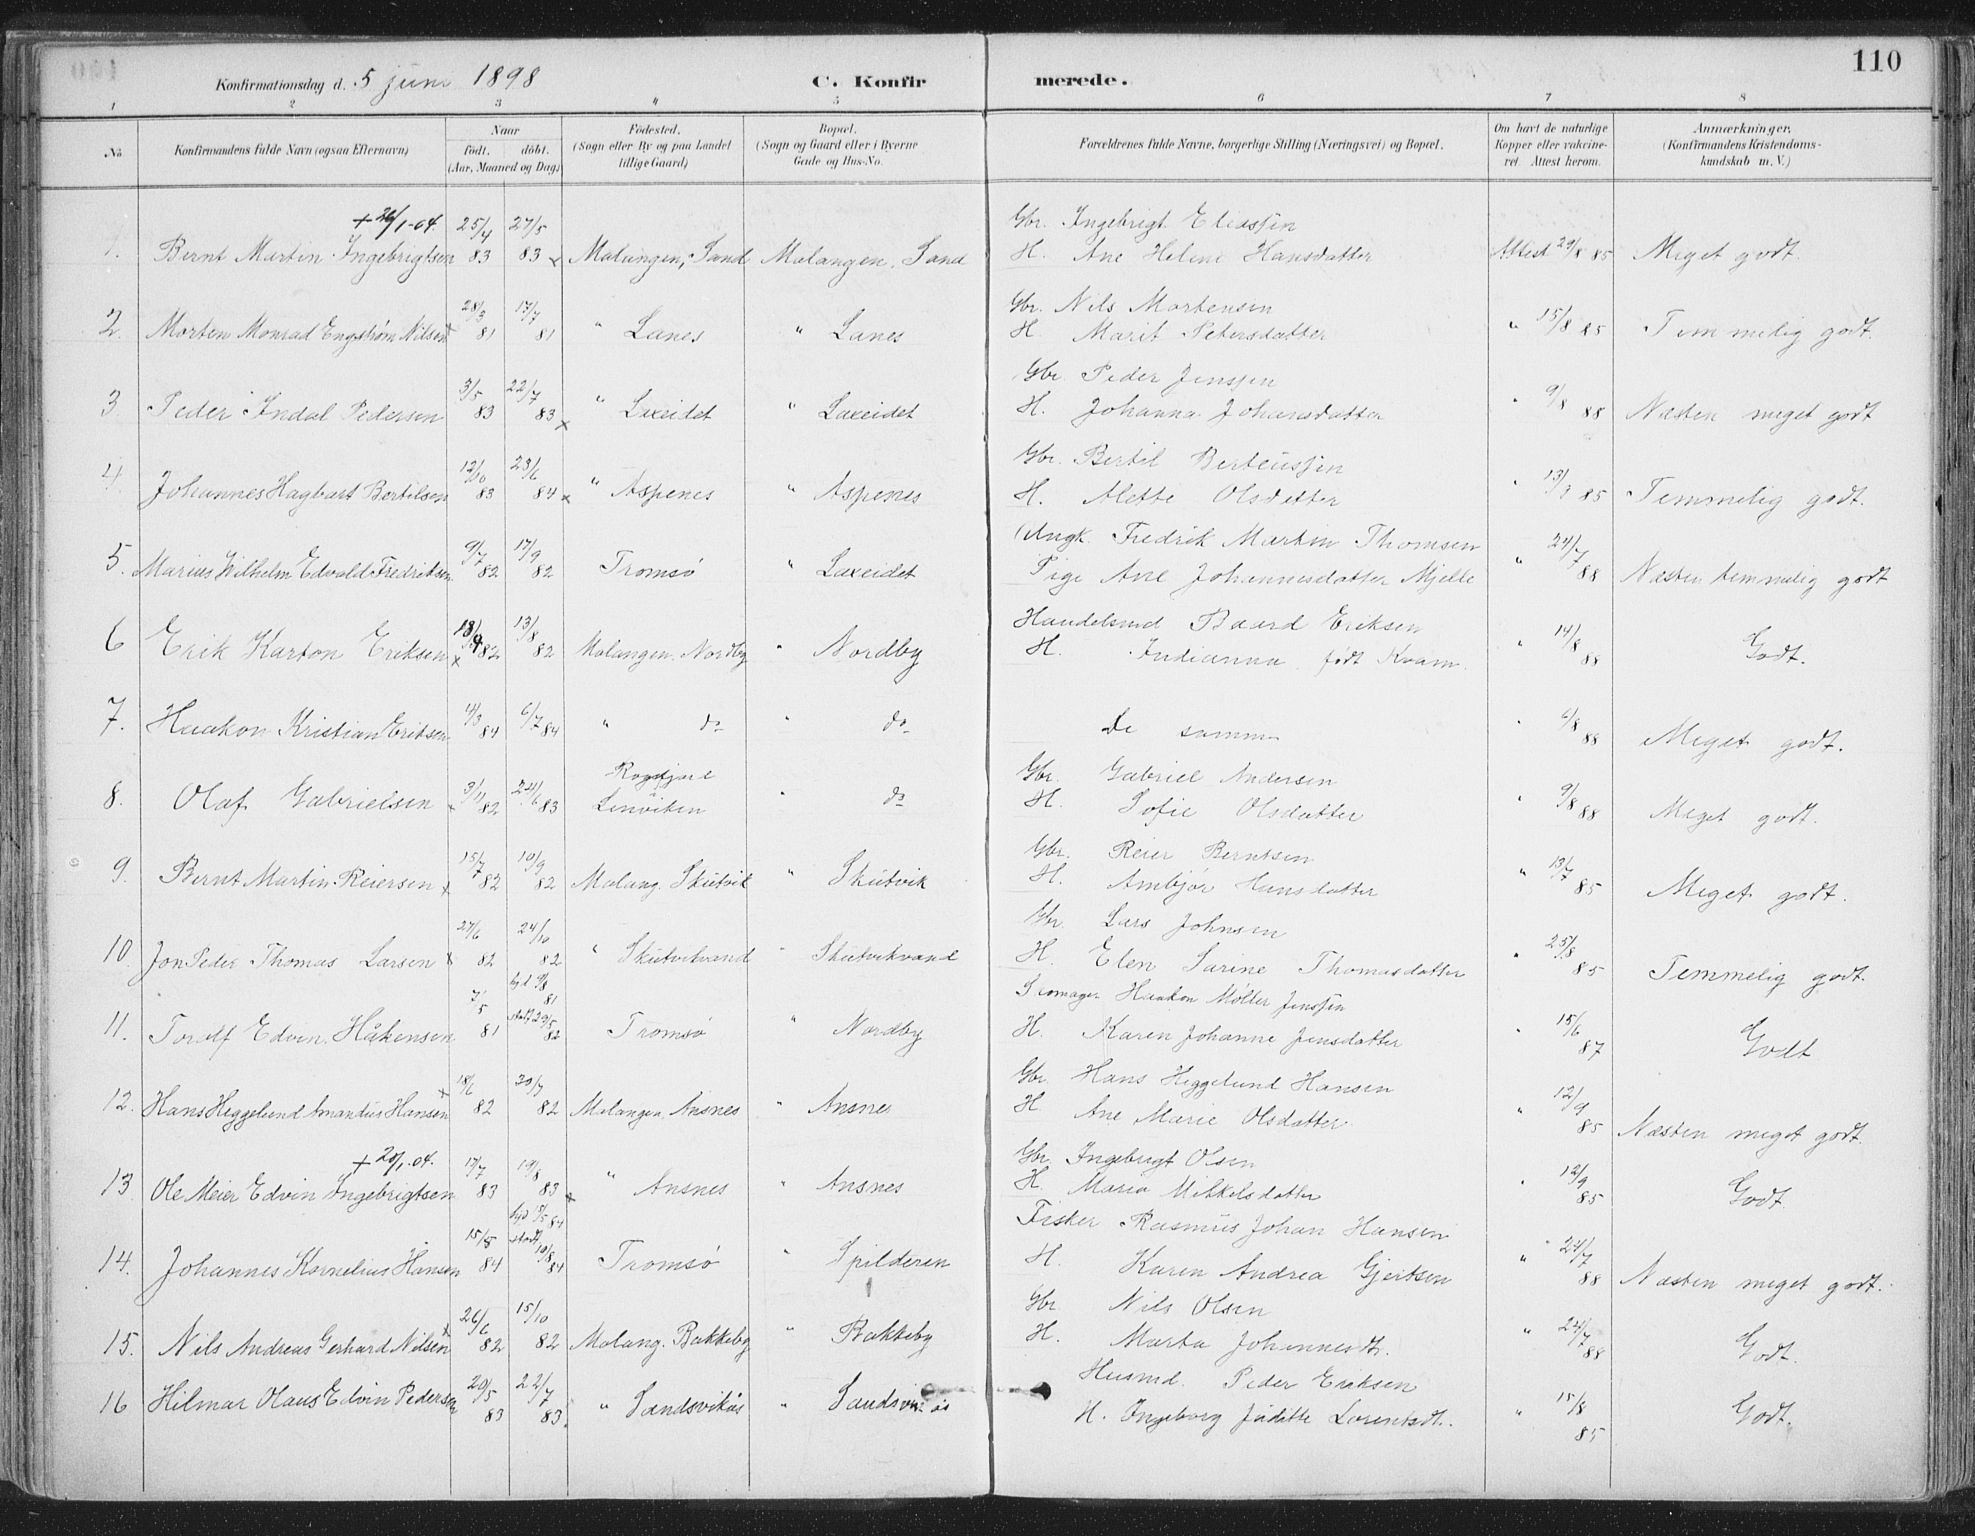 110
Konfirmationsdag d. 5 juni 1898 C. Konfirmerede.
1 2 3 4 5 6 7 8
No Konfirmandens fulde Navn (ogsaa Efternavn) Naar födt. döbt. (Aar, Maaned og Dag) Födested. (Sogn eller By og paa Landet tillige Gaard) Bopæl. (Sogn og Gaard eller i Byerne Gade og Hus-No. Forældrenes fulde Navne, borgerlige Stilling (Næringsvei) og Bopæl. Om havt de naturlige Kopper eller vakcineret. Attest herom. Anmærkninger. (Konfirmandens Kristendomskundskab m. V.)
+ 26/1-04. 25/4 27/5 Gbr. Ingebrigt Eliassen
1. Bernt Martin Ingebrigtsen 83 83 x Malangen, Sand Malangen, Sand H. Ane Helene Hansdatter Attest 29/8 85 Meget godt.
28/3 17/7 Gbr. Nils Mortensen
2. Morten Monrad Engstrøm Nilsen x 81 81 " Lanes " Lanes H. Marit Petersdatter " 15/8 85 Temmelig godt.
3/5 22/7 Gbr. Peder Jenssen
3. Peder Indal Pedersen 83 83 x " Laxeidet " Laxeidet H. Johanna Johansdatter " 9/8 88 Næsten meget godt
12/10 23/6 Gbr. Bertil Berteussen
4. Johannes Hagbart Bertilsen 83 84 x " Aspenes " Aspenes H. Alette Olsdatter " 13/3 85 Temmelig godt.
9/7 17/9 Ungk. Fredrik Martin Thomsen
5. Marius Wilhelm Edvald Fredriksen 82 82 Tromsø " Laxeidet Pige Ane Johannesdatter Mjelle " 24/7 88 Næsten temmelig godt
18/4 13/8 Handelsmd Baard Eriksen
6 Erik Karton Eriksen x 82 82 Malangen. Nordby " Nordby H. Indianna født Kvam. " 14/8 88 Godt.
7. Haakon Kristian Eriksen 11/3 84 6/7 84 " do " do de samme " 6/8 88 Meget godt.
Gbr. Gabriel Andersen
8. Olaf Gabrielsen x 3/11 82 24/6 83 Lenviken " do H. Sofie Olsdatter " 9/8 88 Meget godt.
15/7 10/9 Gbr. Reier Berntsen
9. Bernt Martin Reiersen x 82 82 Malang. Skutvik " Skutvik H. Ambjør Hansdatter " 13/7 85 Meget godt.
27/6 24/10 Gbr Lars Johnsen
10. Jon Peder Thomas Larsen x 82 82 " Skutvikvand " Skutvikvand H. Elen Sarine Thomasdatter " 25/8 85 Temmelig godt.
7/5 81 Skomager Haakon Møller Jenssen
11. Torolf Edvin Håkensen 81 stadf 29/5 82 Tromsø " Nordby H. Karen Johanne Jensdatter " 15/6 87 Godt
18/6 30/7 Gbr. Hans Heggelund Hansen
12. Hans Heggelund Amandus Hansen x 82 82 Malangen Ansnes " Ansnes H. Ane Marie Olsdatter " 12/9 85 Næsten meget godt.
+ 20/1-04. 17/7 19/8 Gbr Ingebrigt Olsen
13 Ole Meier Edvin Ingebrigtsen 83 83 x " Ansnes " Ansnes H. Maria Mikkelsdatter " 12/9 85 Godt
15/5 84 Fisker Rasmus Johan Hansen
14. Johannes Kornelius Hansen 84 10/8 84 Tromsø " Spilderen H. Karen Andrea Gjertsen " 24/7 88 Næsten meget godt.
26/6 15/10 Gbr Nils Olsen
15. Nils Andreas Gerhard Nilsen x 82 82 Malang. Bakkeby " Bakkeby H. Marta Johannesdt. " 24/7 88 Godt.
20/5 22/7 Husmd. Peder Eriksen
16 Hilmar Olaus Edvin Pedersen 83 83 " Sandsvikås " Sandsvikås H. Ingeborg Juditte Lorentsdt. " 15/8 85 Godt.